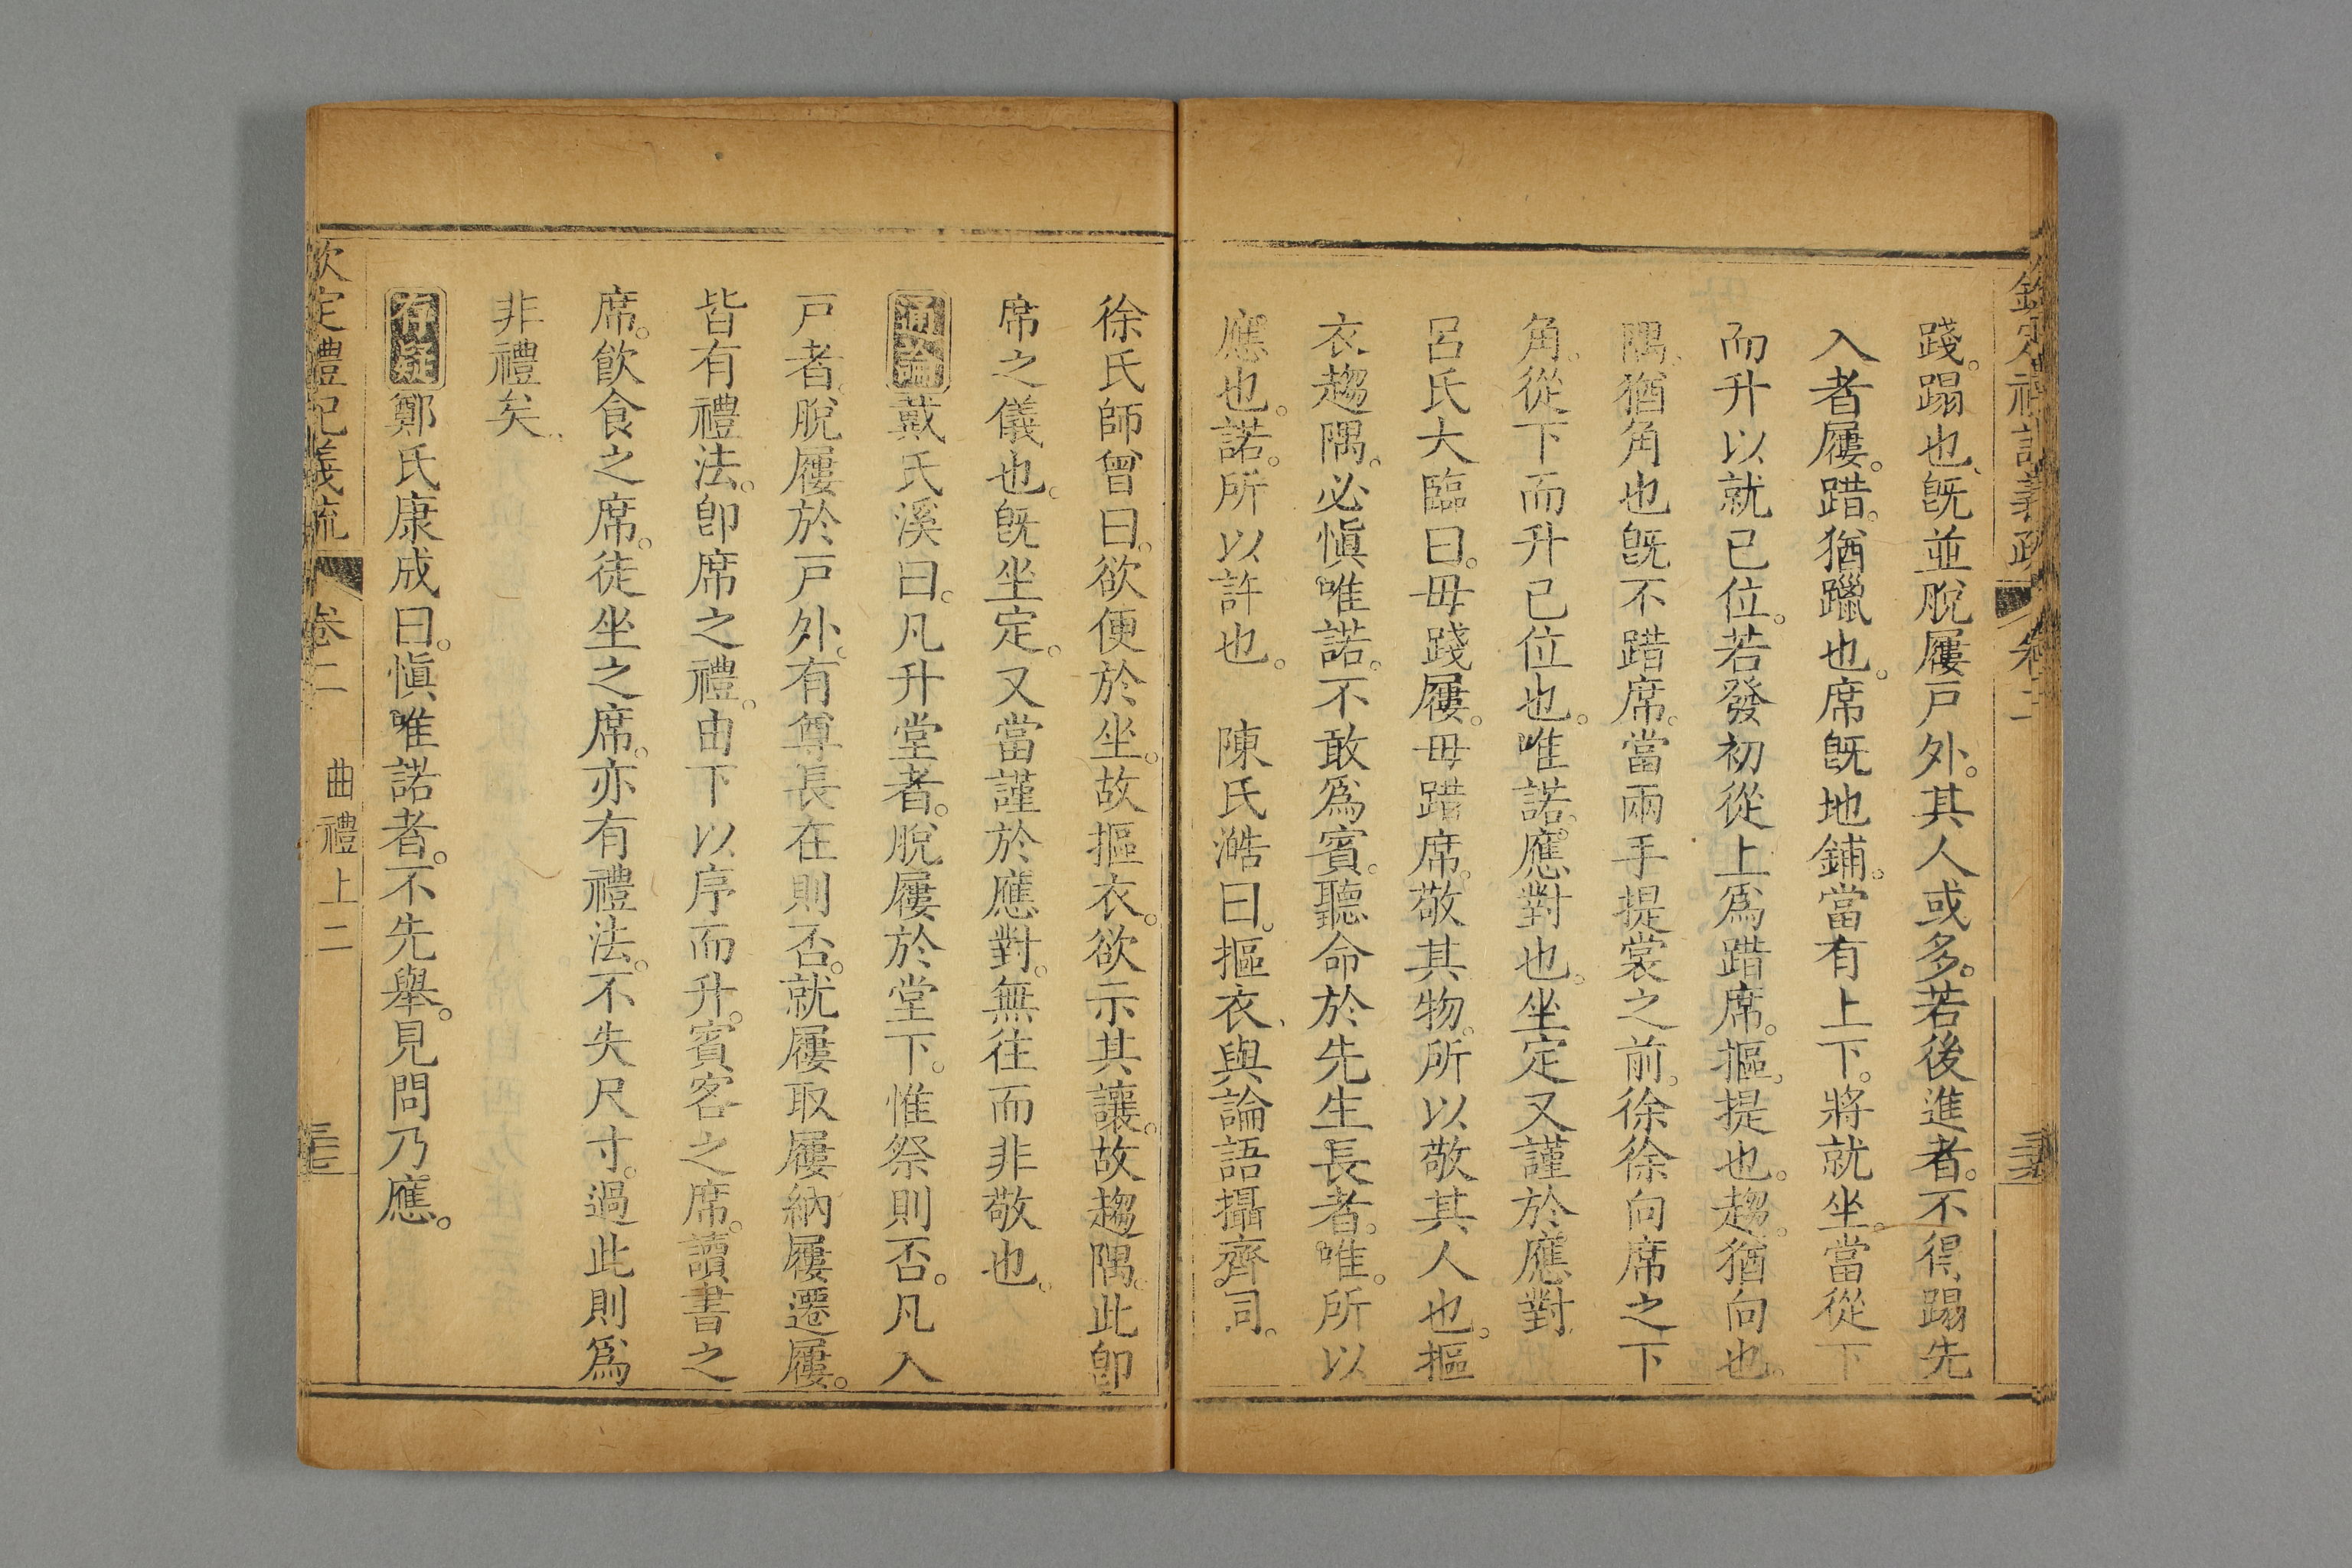 欽定禮記義疏 卷二
踐。蹋也、旣並脫屨戸外。其人或多。若後進者。不得蹋先
入者屨。踖。猶躐也。席旣地鋪。當有上下。將就坐。當從下
而升以就己位。若發初從上爲踖席。摳。提也。趨。猶向也。
隅。猶角也旣不踖席。當兩手提裳之前。徐徐向席之下
角。從下而升己位也。唯諾。應對也。坐定又謹於應對
呂氏大臨曰。毋踐屨。毋踖席。敬其物。所以敬其人也。摳
衣趨隅。必愼唯諾。不敢爲賓。聽命於先生長者。唯。所以
應也。諾。所以許也。 陳氏澔曰。摳衣、與論語攝齊。同。
徐氏師曾曰。欲便於坐。故摳衣。欲示其讓。故趨隅。此卽
席之儀也。旣坐定。又當謹於應對。無往而非敬也。
通論戴氏溪曰。凡升堂者。脫屨於堂下。惟祭則否。凡入
戸者。脫屨於戸外。有尊長在則否。就屨取屨納屨遷屨。
皆有禮法。卽席之禮。由下以序而升。賓客之席。讀書之
席。飮食之席。徒坐之席。亦有禮法。不失尺寸。過此則爲
非禮矣。
存疑鄭氏康成曰。愼唯諾者。不先舉。見問乃應。
欽定禮記義疏 卷二 曲禮上二